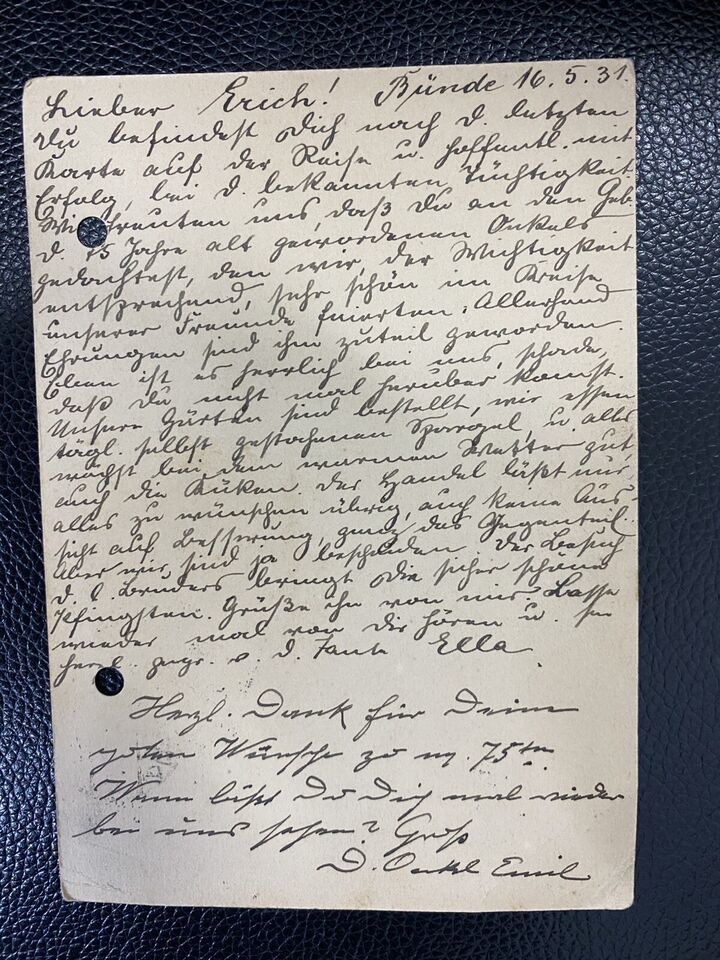 Lieber Erich! Bünde 16.5.31.
Du befindest Dich nach d. letzten
Karte auf der Reise u. hoffentl. mit
Erfolg, bei d. bekannten Tüchtigkeit.
Wir freuten uns, daß Du an den Geb.
d. 75 Jahre alt gewordenen Onkels
gedachtest, den wir, der Wichtigkeit
entsprechend, sehr schön im Kreise
unserer Freunde feierten. Allerhand
Ehrungen sind ihm zuteil geworden.
Eben ist es herrlich bei uns, schade,
daß Du nicht mal herüber kamst.
Unsere Gärten sind bestellt, wir essen
tägl. selbst gestochenen Spargel, u. alles
wächst bei dem warmen Wetter gut,
auch die Küken. Der Handel läßt nur
alles zu wünschen übrig, auch keine Aus-
sicht auf Besserung, ganz das Gegenteil.
Aber wir sind ja bescheiden. Der Besuch
d. l. Bruders bringt Dir sicher schöne
Pfingsten. Grüße ihn von mir. Lasse
wieder mal von Dir hören u. sei
herzl. gegr. v. d. Tante Ella
Herzl. Dank für Deine
guten Wünsche zu m. 75ten
Wann läßt Du Dich mal wieder
bei uns sehen? Gruß
D. Onkel Emil